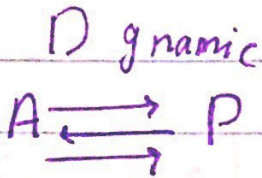 D gnamic
A ⇄ P
→